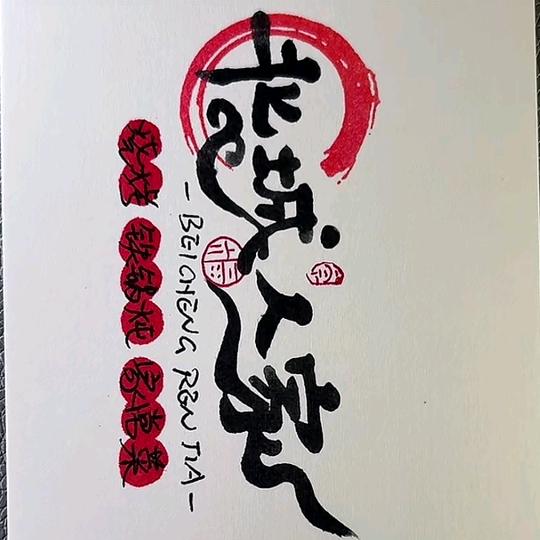 北城人家
- BEICHENG REN JIA -
烧烤 铁锅炖 家常菜